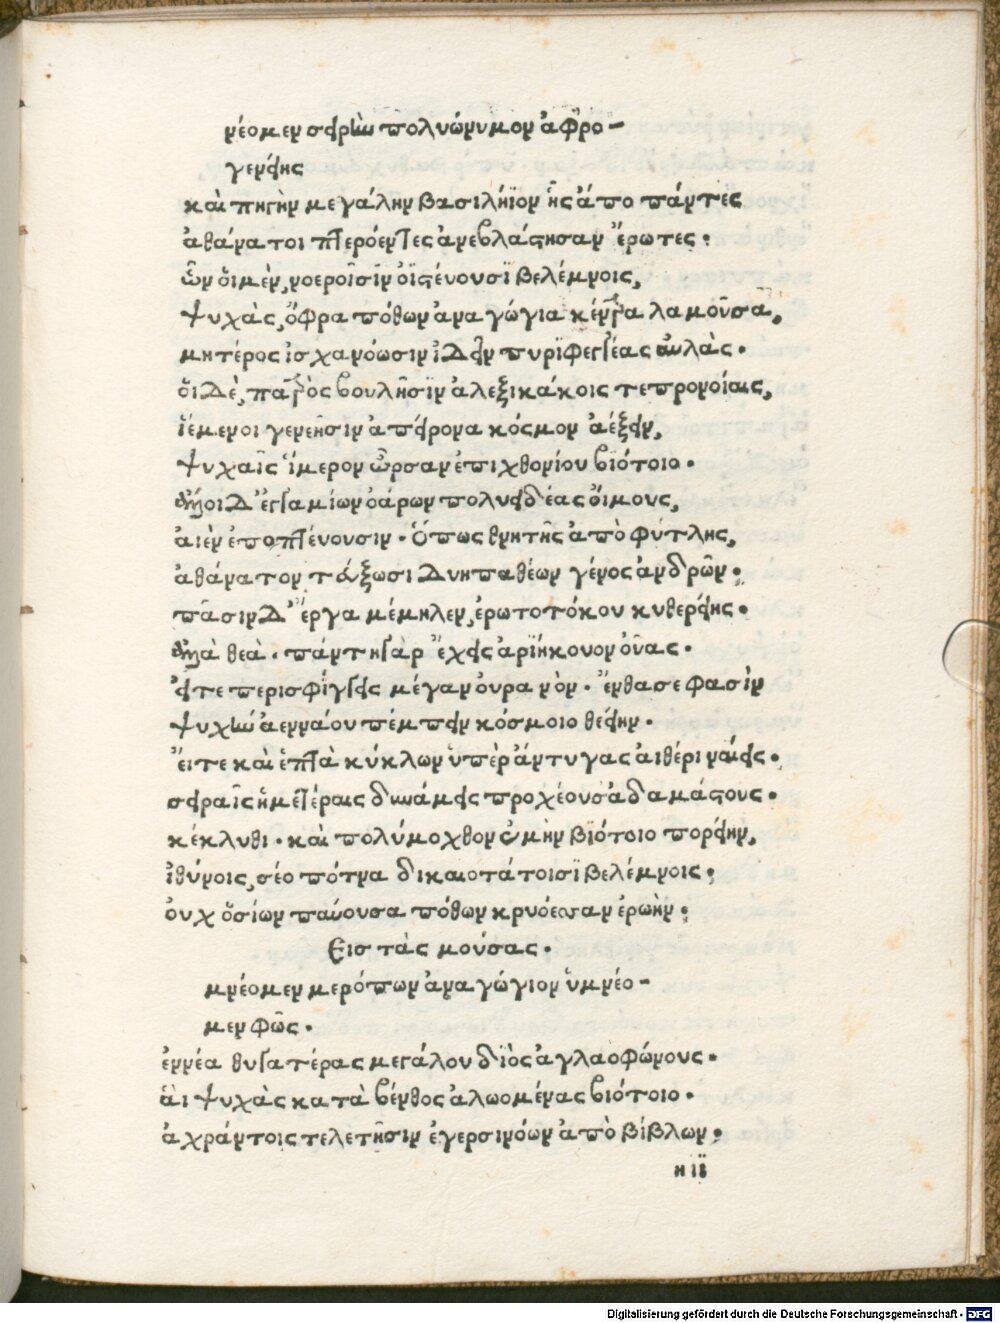 μνέομεν σειρὴν πολυώνυμον ἀφρο-
γενείης
καὶ πηγὴν μεγάλην βασιλήϊον ἧς ἄπο πάντες
ἀθάνατοι πτερόεντες ἀνεβλάστησαν ἔρωτες.
ὧν ὅι μὲν, νοεροῖσιν ὀϊστένουσϊ βελέμνοις,
ψυχὰς, ὄφρα πόθων ἀναγώγια κέντρα λαμοῦσαι,
μητέρος ἰσχανόωσιν ἰδεῖν πυρϊφεγγέας αὐλὰς.
ὅι δὲ, πατρὸς βουλῆσϊν ἀλεξικάκοις τε προνοίαις,
ἱέμενοι γενεῆσιν ἀπείρονα κόσμον ἀέξειν,
ψυχαῖς ἵμερον ὦρσαν ἐπιχθονίου βιότοιο.
ἄλλοι δ' ἐγγαμίων ὀάρων πολυειδέας ὄιμους,
αἰὲν ἐποπτένουσιν. ὅπως θνητῆς ἀπὸ φύτλης,
ἀθάνατον τεύξωσι δυηπαθέων γένος ἀνδρῶν.
πᾶσιν δ' ἔργα μέμηλεν, ἐρωτοτόκου κυθερείης.
ἀλλὰ θεὰ. πάντη γὰρ ἔχεις ἀρϊήκουον ὀῦας.
εἴτε περισφίγγεις μέγαν ὀυρανὸν. ἔνθα σε φασὶν
ψυχὴν ἀενναόυ πέμπειν κόσμοιο θείην.
ἔιτε καὶ ἑπτὰ κύκλων ὑπὲρ ἄντυγας ἀιθέρι ναίεις.
σειραῖς ἡμετέραις δυνάμεις προχέουσ' ἀδαμάστους.
κέκλυθι. καὶ πολύμοχθον ἐμὴν βϊότοιο πορείην,
ἰθύνοις, σέο πότνα δικαιοτάτοισϊ βελέμνοις.
ὀυχ ὁσίων παύουσα πόθων κρυόεσσαν ἐρωὴν.
Εισ τὰς μούσας.
μνέομεν μερόπων ἀναγώγιον ὕμνέο-
μεν φῶς.
ἐννέα θυγατέρας μεγάλου διὸς ἀγλαοφώνους.
ἁὶ ψυχὰς κατὰ βένθος ἀλωομένας βιότοιο.
ἀχράντοις τελετῆσιν ἐγερσινόων ἀπὸ βίβλων.
η ΙΙ
Digitalisierung gefördert durch die Deutsche Forschungsgemeinschaft - DFG